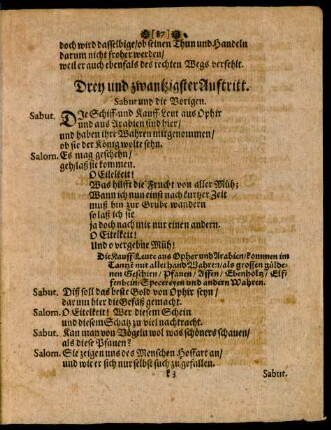 [87]
doch wird dasselbige/ob seinen Thun und Handeln
darum nicht froher werden/
weil er auch ebenfals des rechten Wegs verfehlt.
Drey und zwantzigster Auftritt.
Sabut und die Vorigen.
Sabut. DJe Schiff- und Kauff-Leut aus Ophir
und aus Arabien sind hier/
und haben ihre Wahren mitgenommen/
ob sie der König wolte sehn.
Salom. Es mag geschehn/
geh/laß sie kommen.
O Eitelkeit!
Was hilfft die Frucht von aller Müh;
Wann ich nun einst nach kurtzer Zeit
muß hin zur Grube wandern
so laß ich sie
ja doch nach mir nur einen andern.
O Eitelkeit!
Und o vergebne Müh!
Die Kauff-Leute aus Ophir und Arabien/kommen im
Tantze mit allerhand Wahren/als grossen gülde-
nen Geschirn/Pfauen/Affen/Ebenholtz/Elf-
fenbein/Specereyen und andern Wahren.
Sabut. Diß soll das beste Gold von Ophir seyn/
darum hier die Gefäß gemacht.
Salom. O Eitelkeit! Wer diesem Schein
und diesem Schatz zu viel nachtracht.
Sabut. Kan man von Vögeln wol was schöners schauen/
als diese Pfauen?
Salom. Sie zeigen uns des Menschen Hoffart an/
und wie er sich nur selbst such zu gefallen.
Sabut.